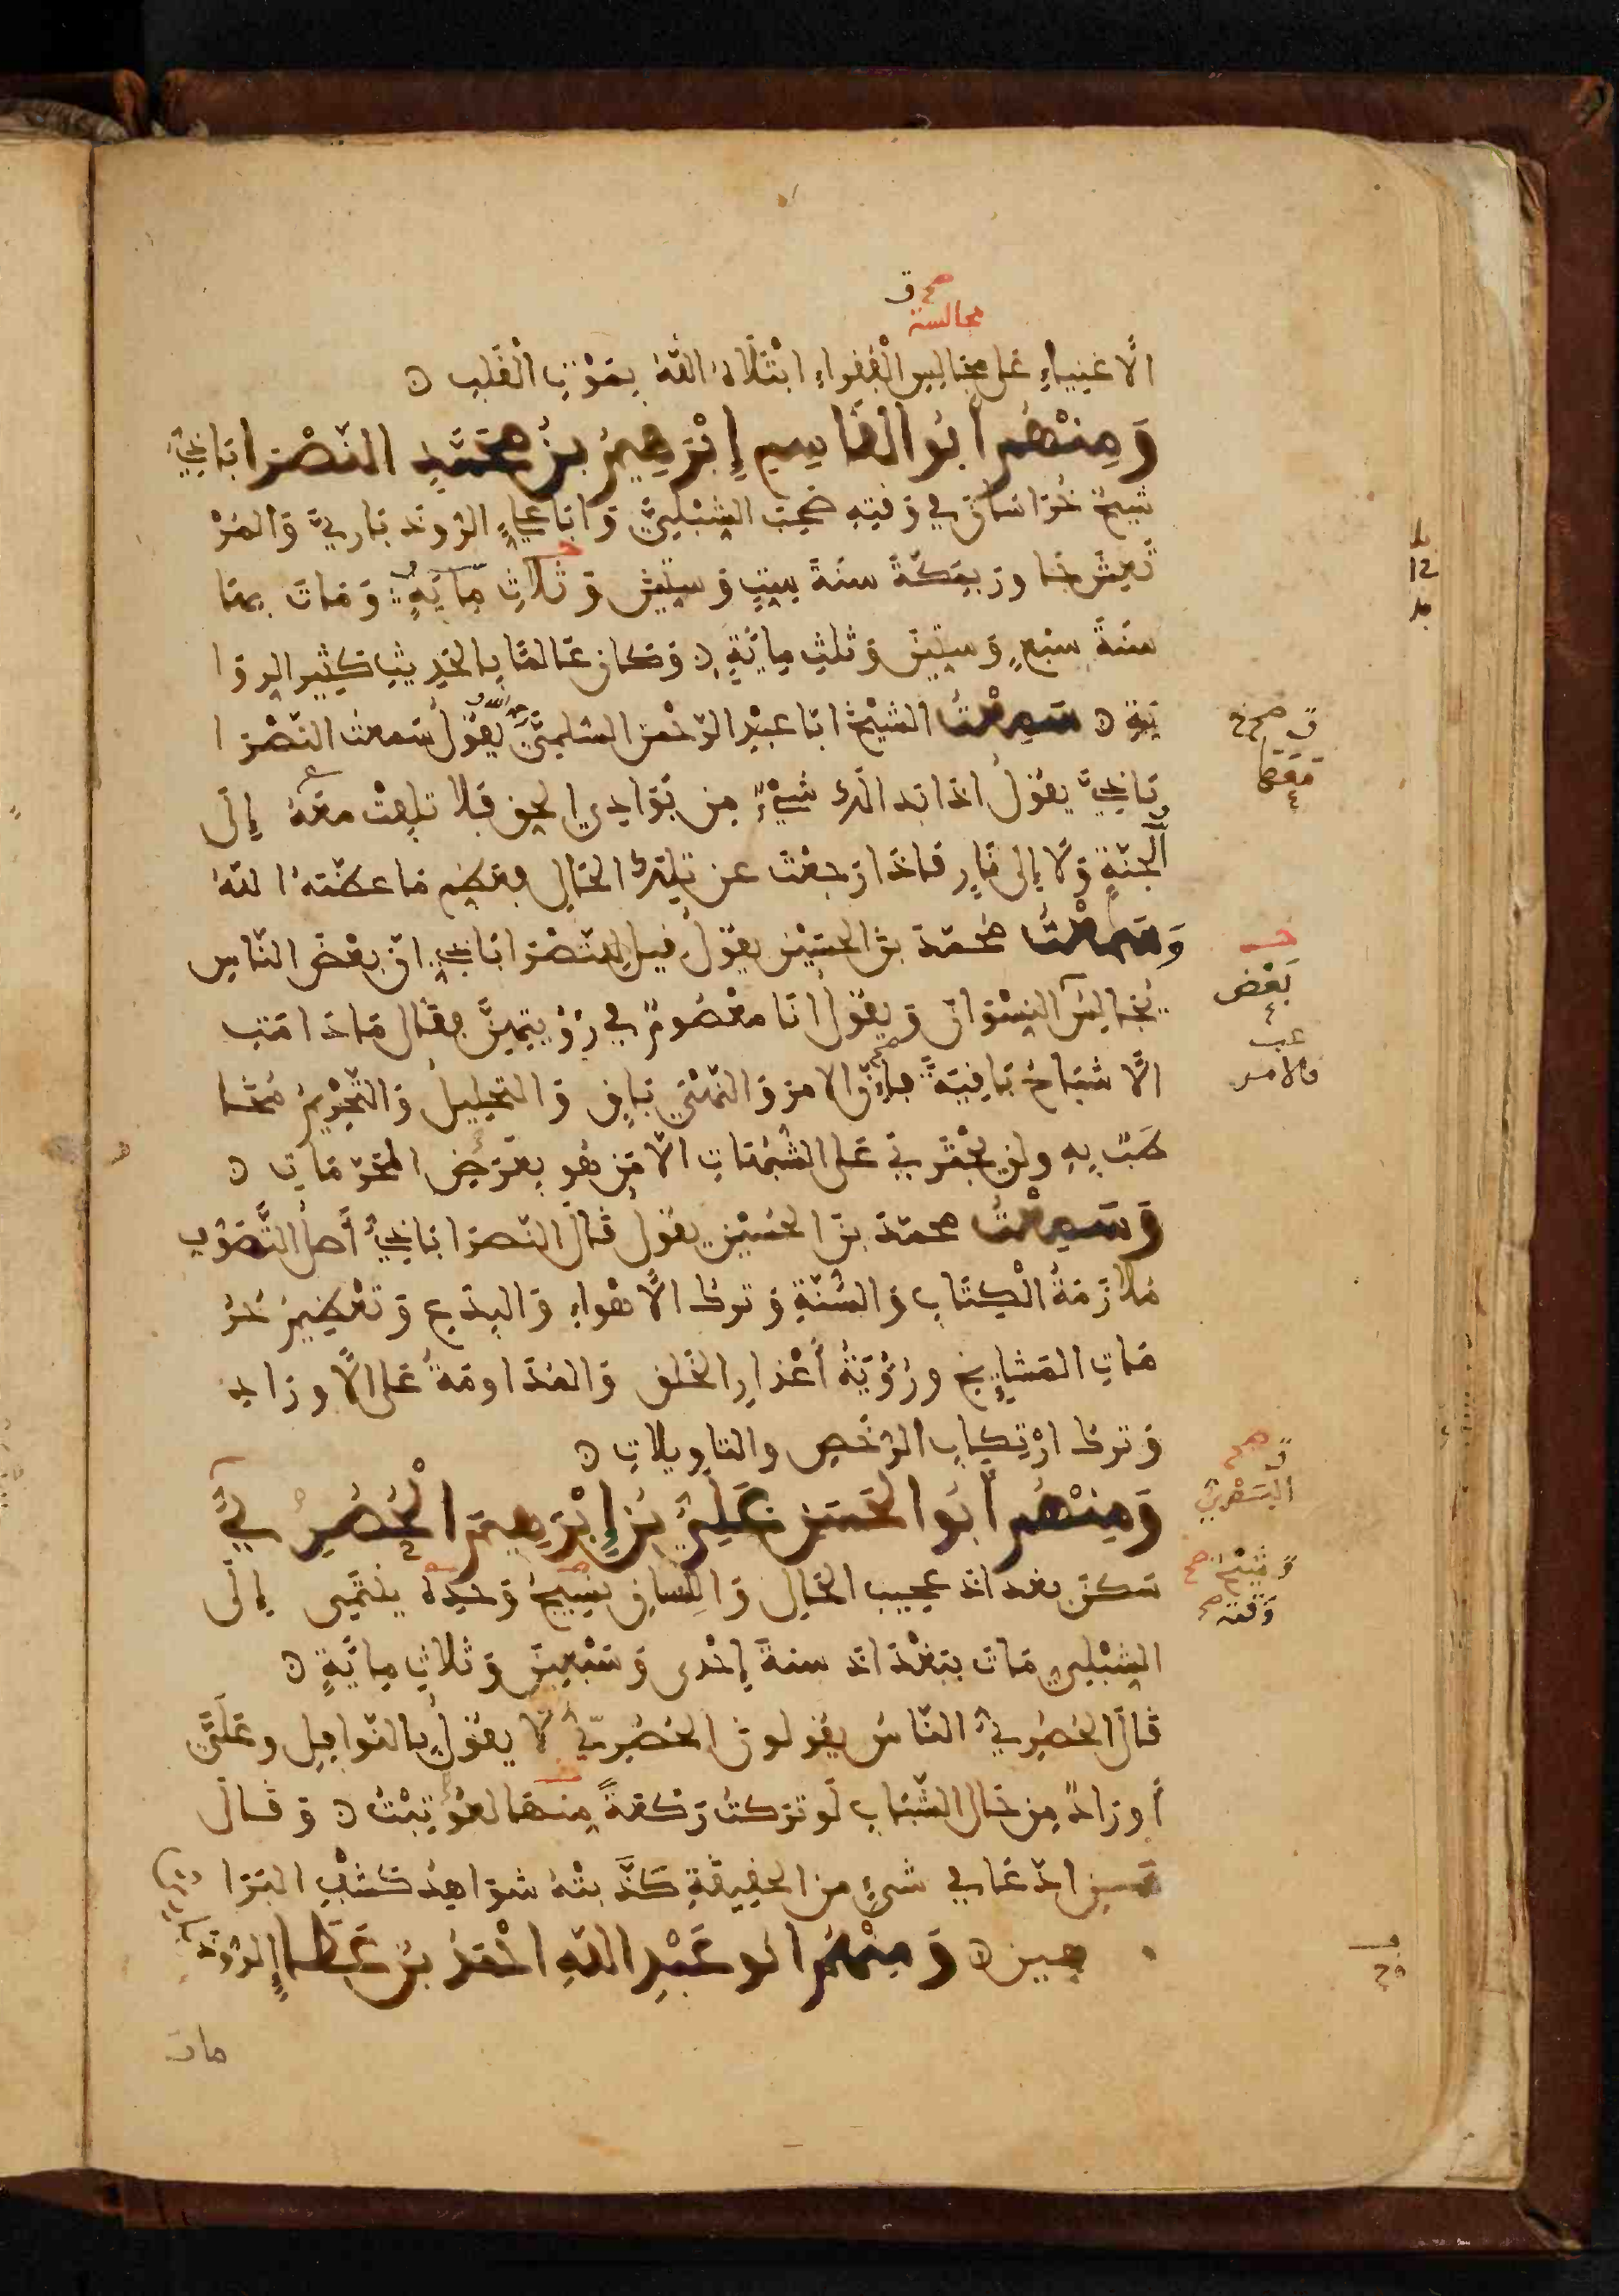 صح ق
مجالسة
الأغنياء على مجالس الفقراء ابتلاه الله بموت القلب
ومنهم أبو القاسم إبرهيم بن محمد النصراباذي
شيخ خراسان في وقته صحب الشبلي وابا علي الروذباري والمر
تعش جاور بمكة سنة ست وستين وثلاث مائة ومات بها
سنة سبع وستين وثلث مائة وكان عالما بالحديث كثير الروا
ية سمعت الشيخ ابا عبد الرحمن السلمي رحمه الله يقول سمعت النصرا
باذي يقول اذا بدا لك شيء من بوادي الحق فلا تلتفت معه إلى
الجنة ولا إلى نار فاذا رجعت عن تلك الحال فعظم ما عظمه الله
وسمعت محمد بن الحسين يقول قيل للنصراباذي ان بعض الناس
يجالس النسوان ويقول انا معصوم في رؤيتهن فقال ما دامت
الأشباح باقية فإن الامر والنهي باق والتحليل والتحريم مخا
طب به ولن يجترئ على الشبهات الا من هو يعرض المحرمات
وسمعت محمد بن الحسين يقول قال النصراباذي أصل التصوف
ملازمة الكتاب والسنة وترك الأهواء والبدع وتعظيم حر
مات المشايخ ورؤية أعذار الخلق والمداومة على الأوراد
وترك ارتكاب الرخص والتاويلات
ومنهم أبو الحسن علي بن إبرهيم الحصري
سكن بغداد عجيب الحال واللسان نسيج وحده ينتمى إلى
الشبلي مات ببغداد سنة إحدى وسبعين وثلاث مائة
قال الحصري الناس يقولون الحصري لا يقول بالنوافل وعلي
أوراد من حال الشباب لو تركت ركعة منها لعوتبت وقال
من ادعا في شيء من الحقيقة كذبته شواهد كشف البرا
هين ومنهم ابو عبد الله احمد بن عطاء الروذ
مات
بعض
البصري
شيخ
وقته